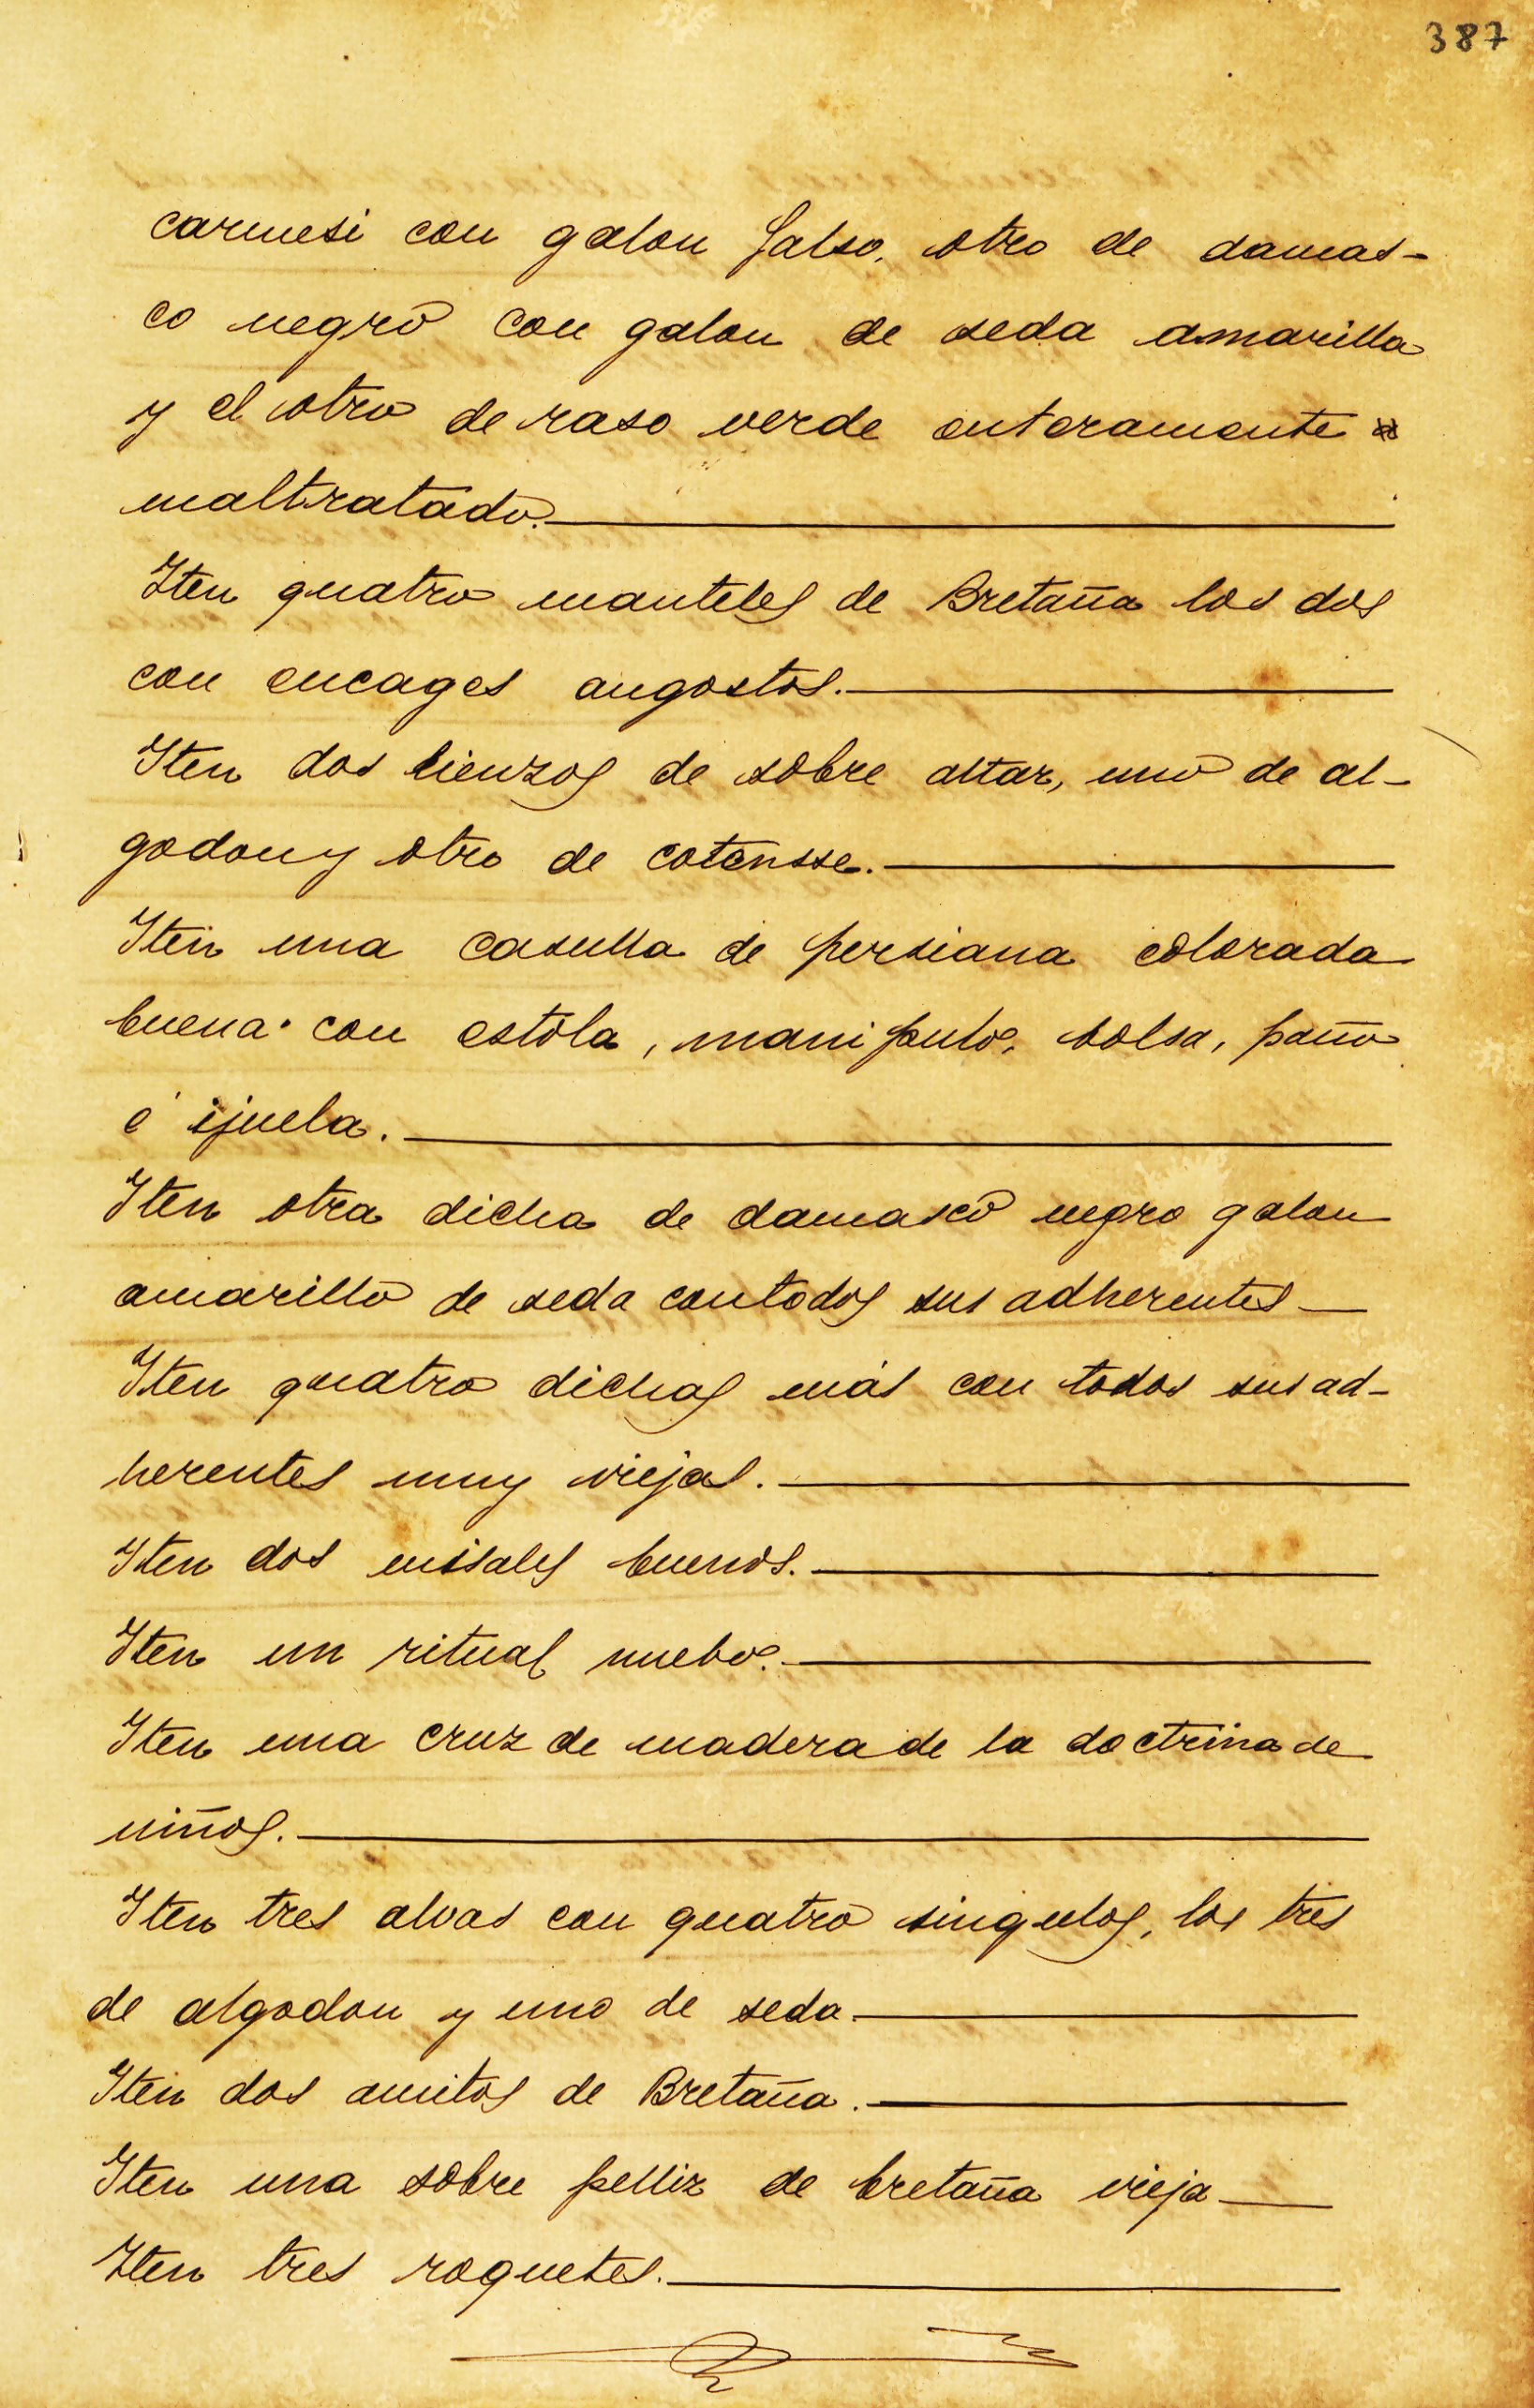 387
carmesi con galon falso, otro de damas-
co negro con galon de seda amarilla
y el otro de raso verde enteramente
maltratado.
Iten quatro manteles de Bretaña los dos
con encages angostos.
Iten dos lienzos de sobre altar, uno de al-
godon y otro de cotensse.
Iten una casulla de persiana colorada
buena con estola, manipulo, bolsa, paño
é ijuela.
Iten otra dicha de damasco negro galon
amarillo de seda con todos sus adherentes
Iten quatro dichas más con todos sus ad-
herentes muy viejas.
Iten dos misales buenos.
Iten un ritual nuebo.
Iten una cruz de madera de la doctrina de
niños.
Iten tres alvas con quatro singulos, los tres
de algodon y uno de seda.
Iten dos amitos de Bretaña.
Iten una sobre pelliz de bretaña vieja
Iten tres roquetes.